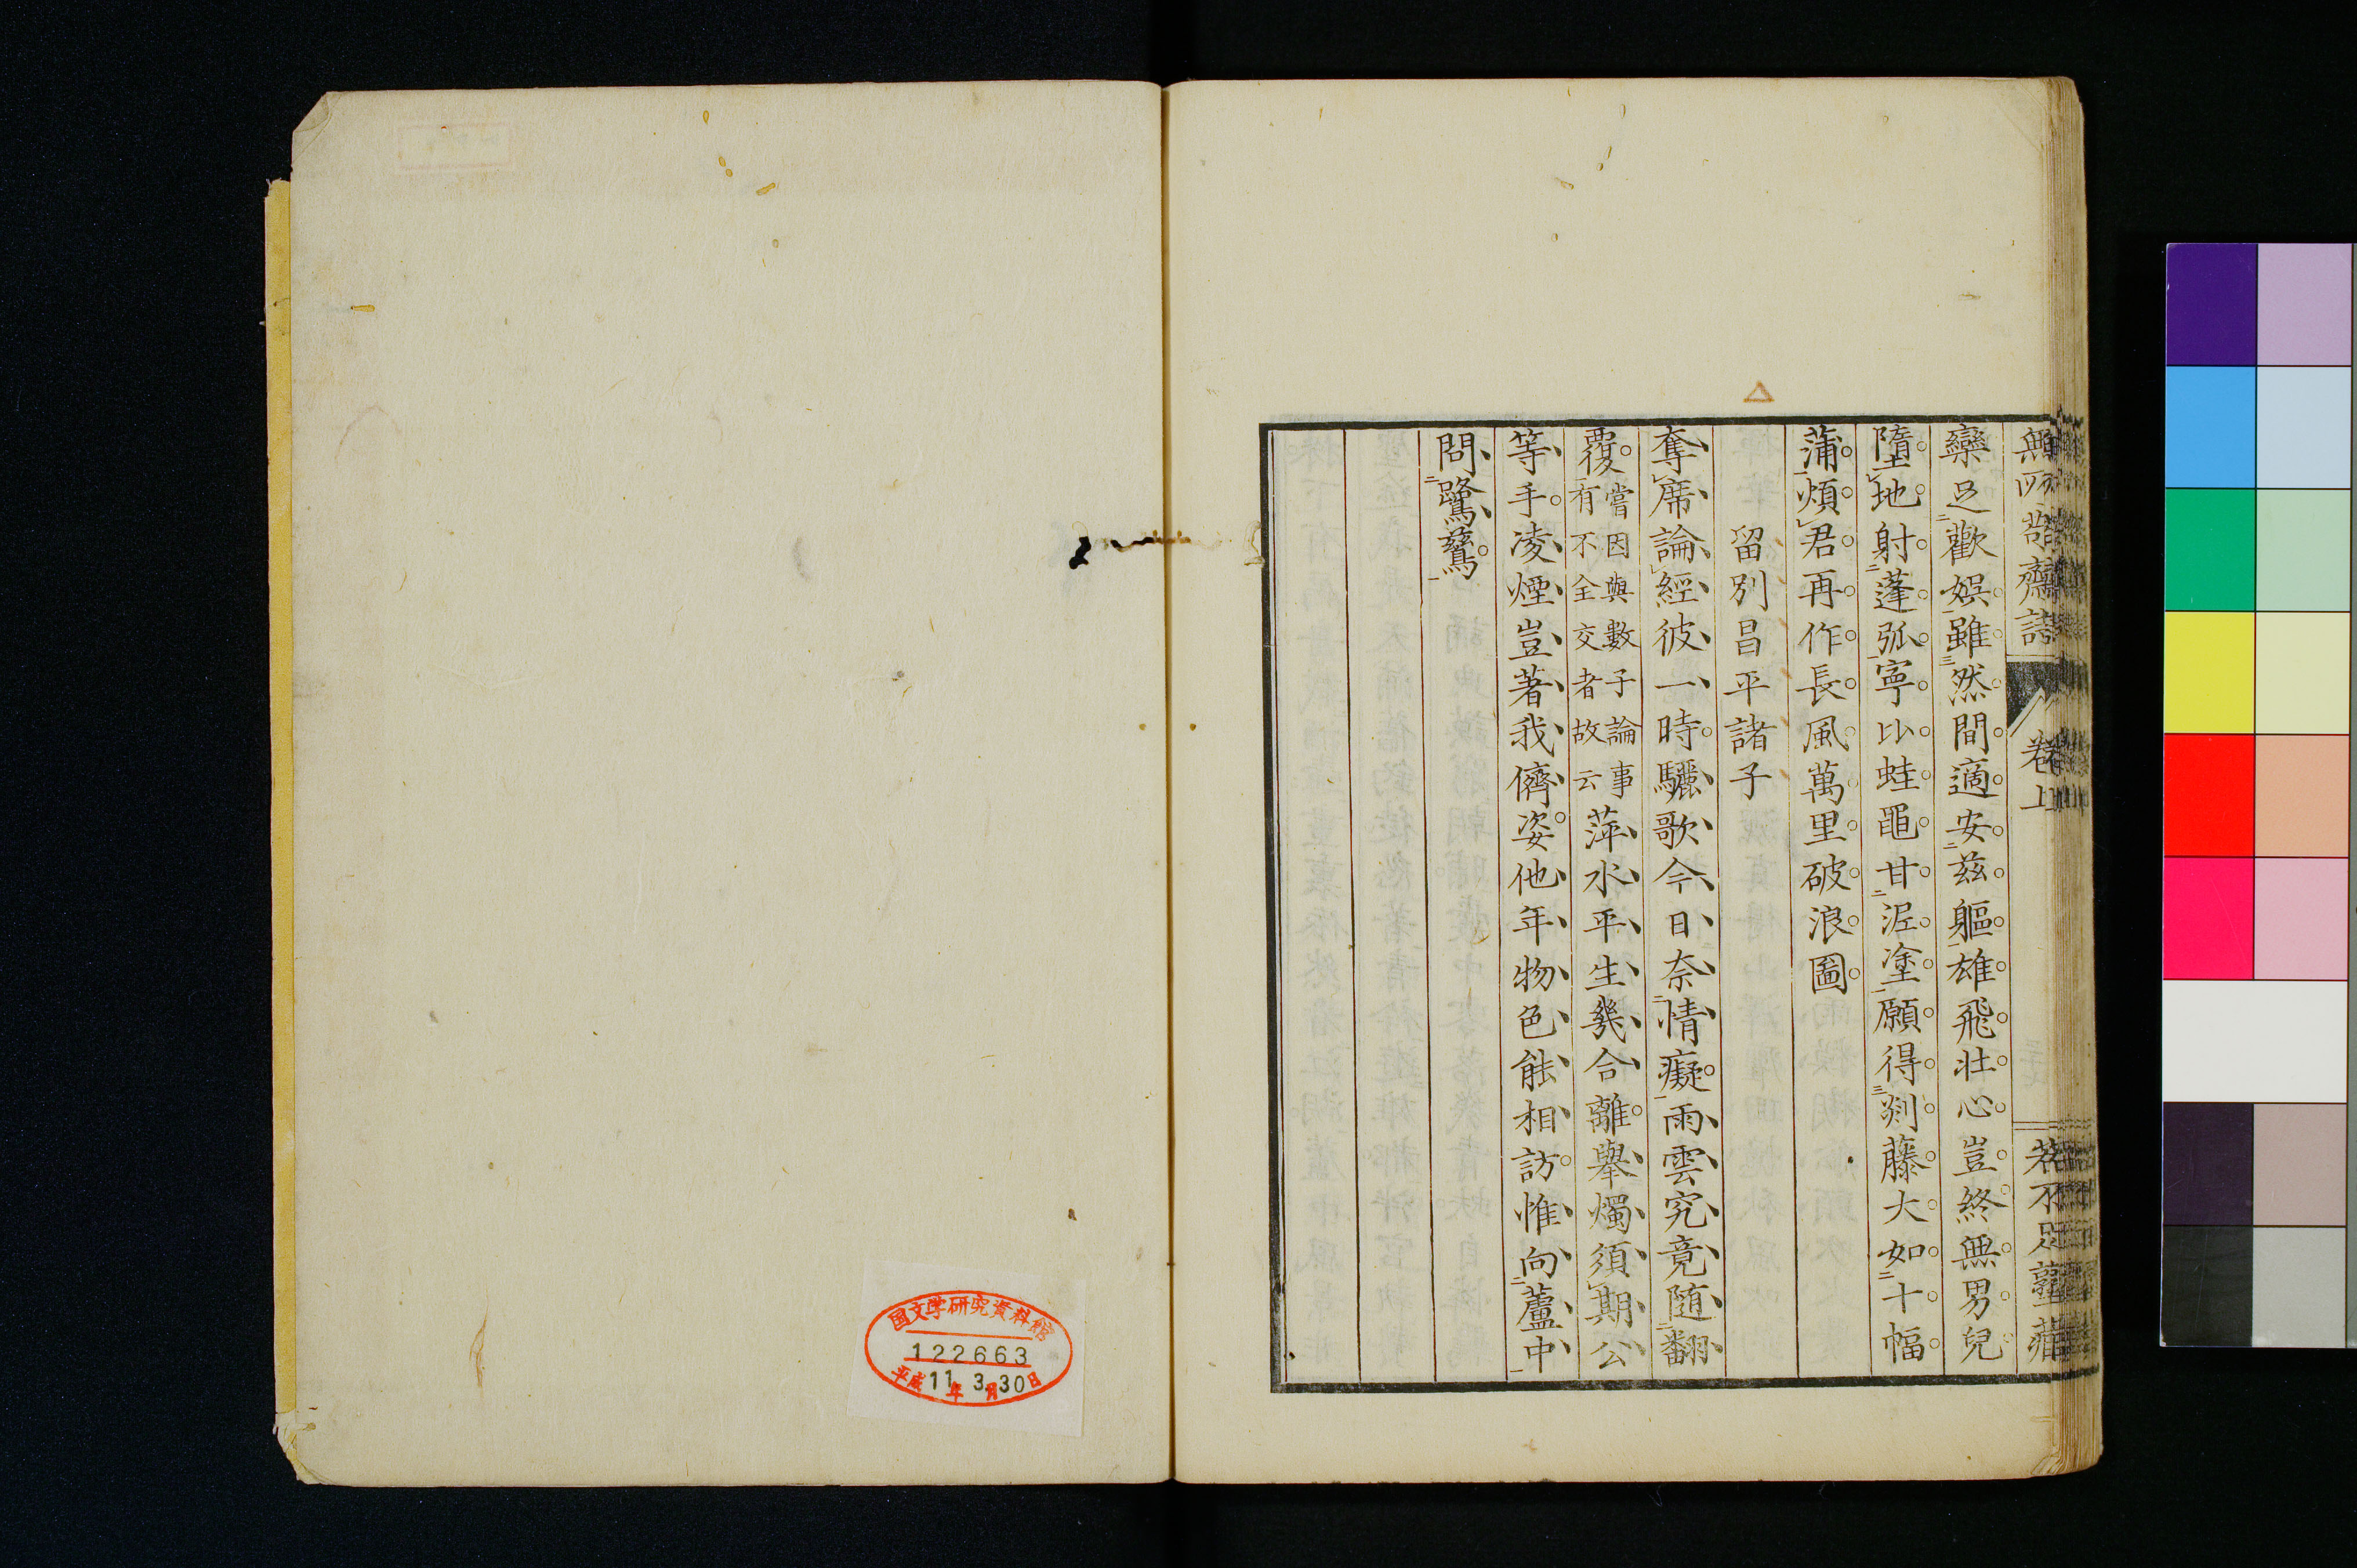 無所苟齋詩 卷上 若不足塾藏
欒足歡娯雖然間適安茲軀雄飛壯心豈終無男兒
墮地射蓬弧寧比蛙黽甘泥塗願得剡藤大如十幅
蒲煩君再作長風萬里破浪圖
留別昌平諸子
奪席論經彼一時驪歌今日奈情癡雨雲究竟隨翻
覆嘗因與數子論事有不全交者故云萍水平生幾合離舉燭須期公
等手凌煙豈著我儕姿他年物色能相訪惟向蘆中
問鷺鶿
国文学研究資料館
122663
平成11年3月30日